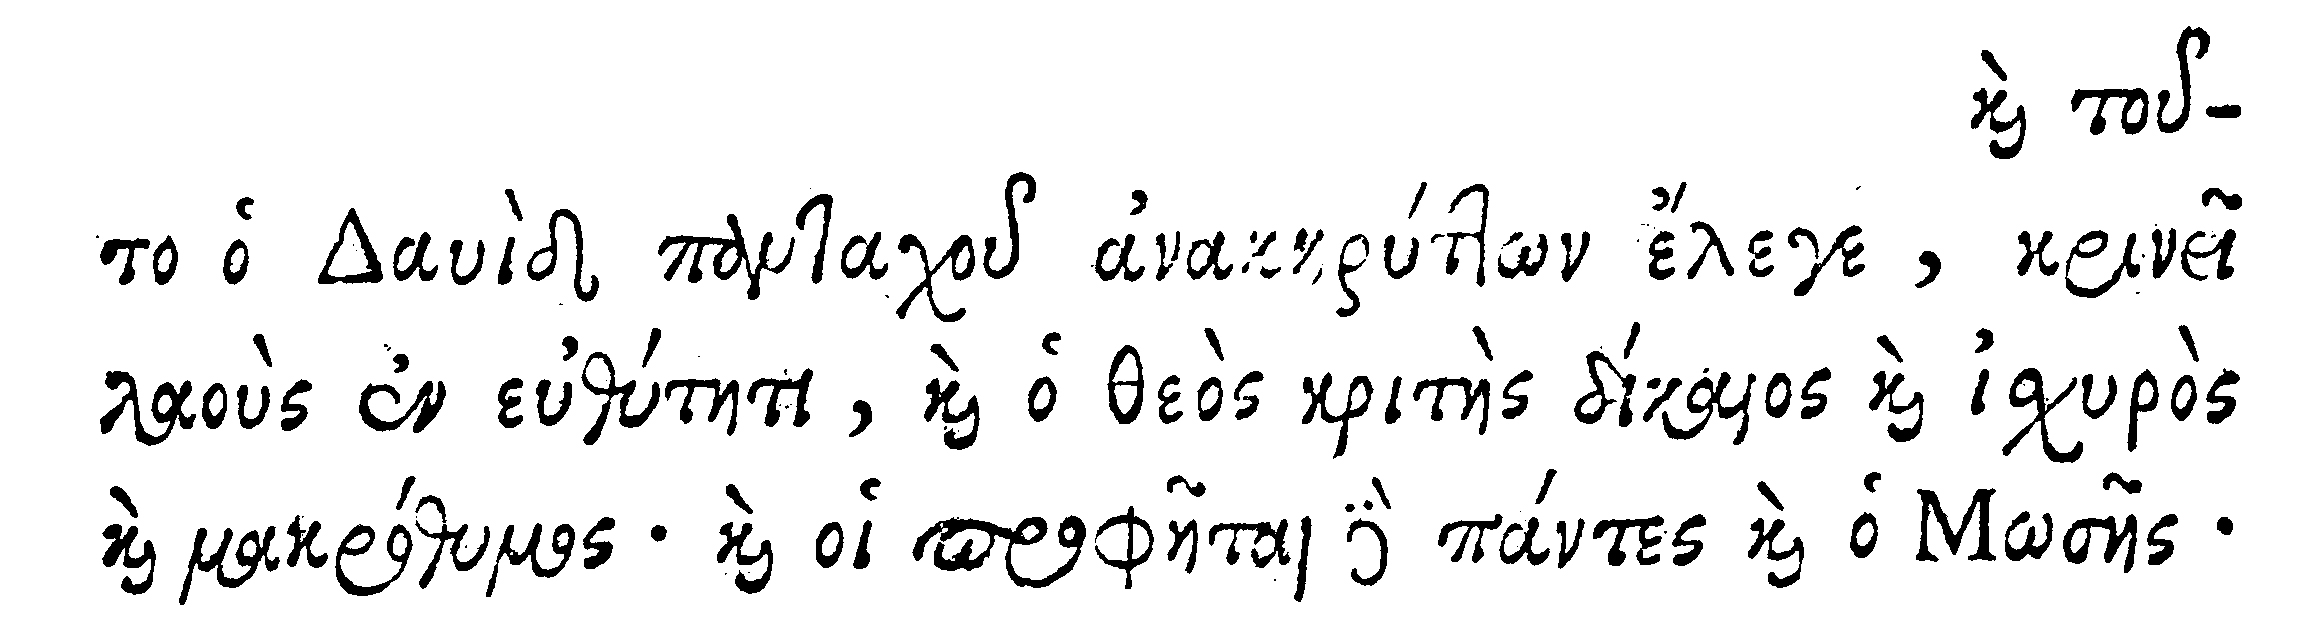 καὶ τοῦ-
το ὁ Δαυὶδ πανταχοῦ ἀνακηρύττων ἔλεγε, κρινεῖ
λαοὺς ἐν εὐθύτητι, καὶ ὁ θεὸς κριτὴς δίκαιος καὶ ἰσχυρὸς
καὶ μακρόθυμος · καὶ οἱ προφῆται δὲ πάντες καὶ ὁ Μωσῆς ·